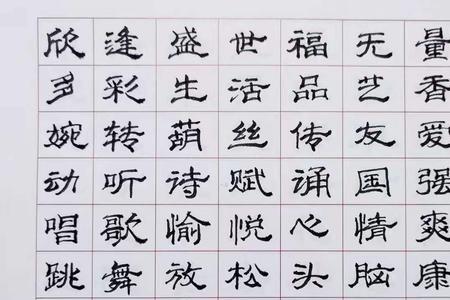 欣逢盛世福无量
多彩生活品艺香
婉转葫丝传友爱
动听诗赋诵国强
唱歌愉悦心情爽
跳舞放松头脑康